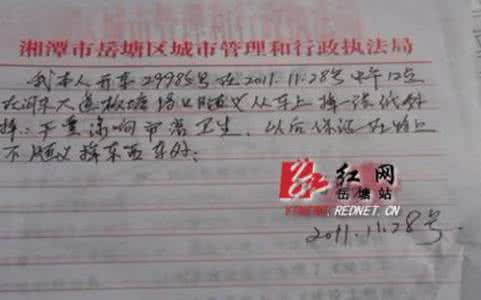 湘潭市岳塘区城市管理和行政执法局
我本人开车29985号在2011.11.28号中午12点
在河东大道板塘 口随义从车上掉一张纸
掉.严重影响市容卫生,以后保证在路上
不随义掉东西车外;
红网
岳塘站
REDNET.CN
2011.11.28号.